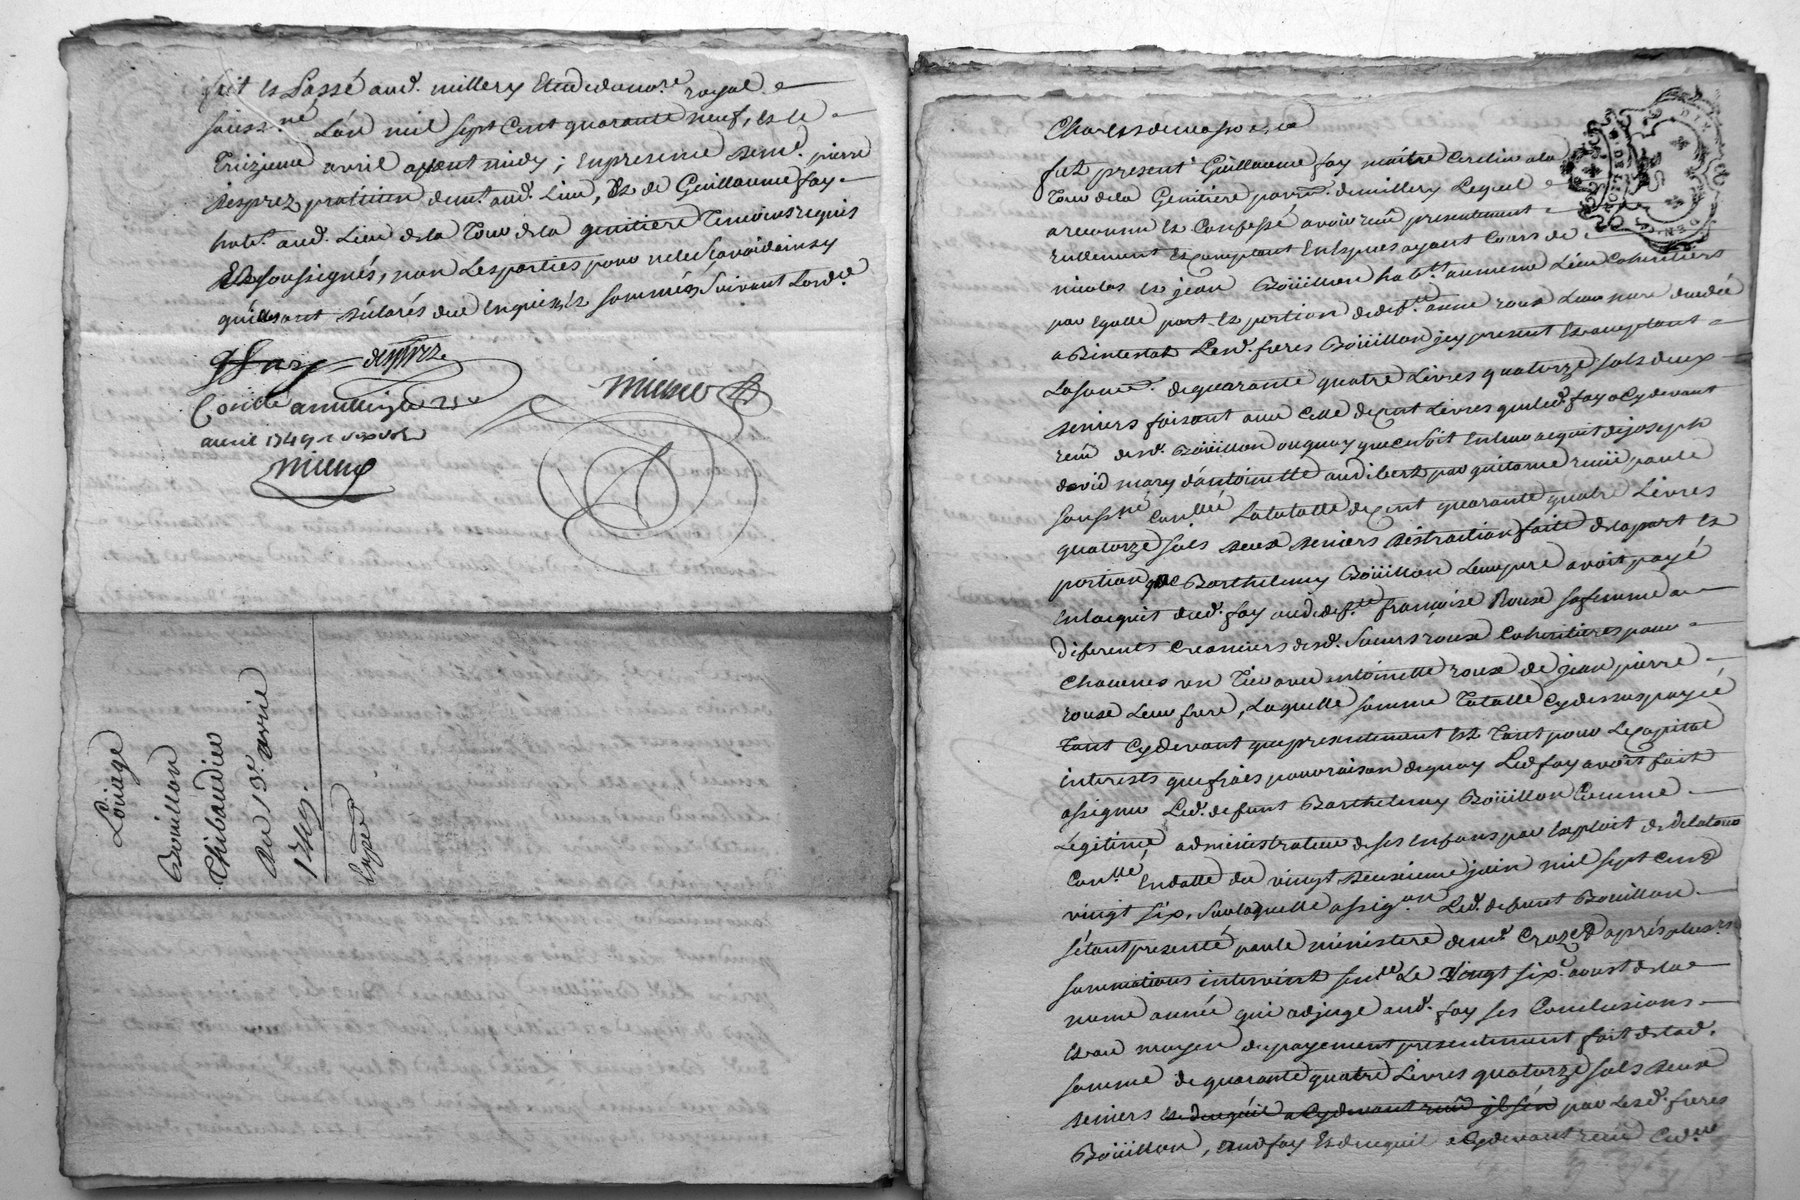 fait et Passé aud. millery Etude du no.re royal
souss.né L'an mil sept Cent quarante neuf, et le
Treizieme avril avant midy; en presence de me. pierre
desprez praticien demt. aud. Lieu, et de Guillaume fay
habt. aud. Lieu de la Tour de la gentiere Temoins requis
Et soussignés, non Les parties pour ne le scavoir ainsy
qu'elles ont déclarés de ce enquis et sommés, suivant Lord.ce
gfay desprez
Conllé a millery le
avril 1749
Loüage
Boüillon
Thibaudier
Du 13.e avril
1749.
Charles de
fut present Guillaume fay maitre
Tour de la Gentiere parr.sse de millery Lequel
a reconnu et Confessé avoir reçu presentement
reellement et comptant En Especes ayant Cours de
nicolas et jean Boüillon hab.ts au meme Lieu Cohéritiers
par Egalle part et portion de def.te anne roux Leur mere decedée
abintestat Lesd. freres Boüillon jcy present et acceptant
La somme de quarante quatre Livres quatorze sols deux
deniers faisant avec Celle de cent Livres que led. fay a Cydevant
reçu desd. Boüillon ou quoy que ce soit En leur acquit de joseph
david mary d'antoinette audibert par quittance reçüe par le
souss.né Con.llée La totalle de cent quarante quatre Livres
quatorze sols deux deniers distraction faite de la part et
portion que Barthelemy Boüillon Leur pere avoit payé
En lacquit dud. fay aud. def.te françoise Roux sa femme a
diferents Creanciers desd. Soeurs roux Cohéritieres pour
Chacunes un Tiers avec antoinette roux de jean pierre
roux Leur frere, Laquelle somme Totalle Cydessus payée
Tant Cydevant que presentement est Tant pour Le Capital
interests que frais pour raison de quoy Led. fay avoit fait
assigner Led. defunt Barthelemy Boüillon Comme
Légitime administrateur de ses Enfans par Exploit de Delatour
Con.llé, En datte du vingt deuxieme juin mil sept Cent
vingt six, Sur laquelle assig.on Led. defunt Bouillon
s'étant presenté par le ministere de me. Crozet aprés plus.rs
sommations intervint sent.ce Le Vingt six.e aoust de la
meme année qui adjuge aud. fay ses Conclusions
Et au moyen du payement presentement fait de lad.
somme de quarante quatre Livres quatorze sols deux
deniers par Lesd. freres
Boüillon, aud. fay Et de ce qu'il a Cydevant reçu